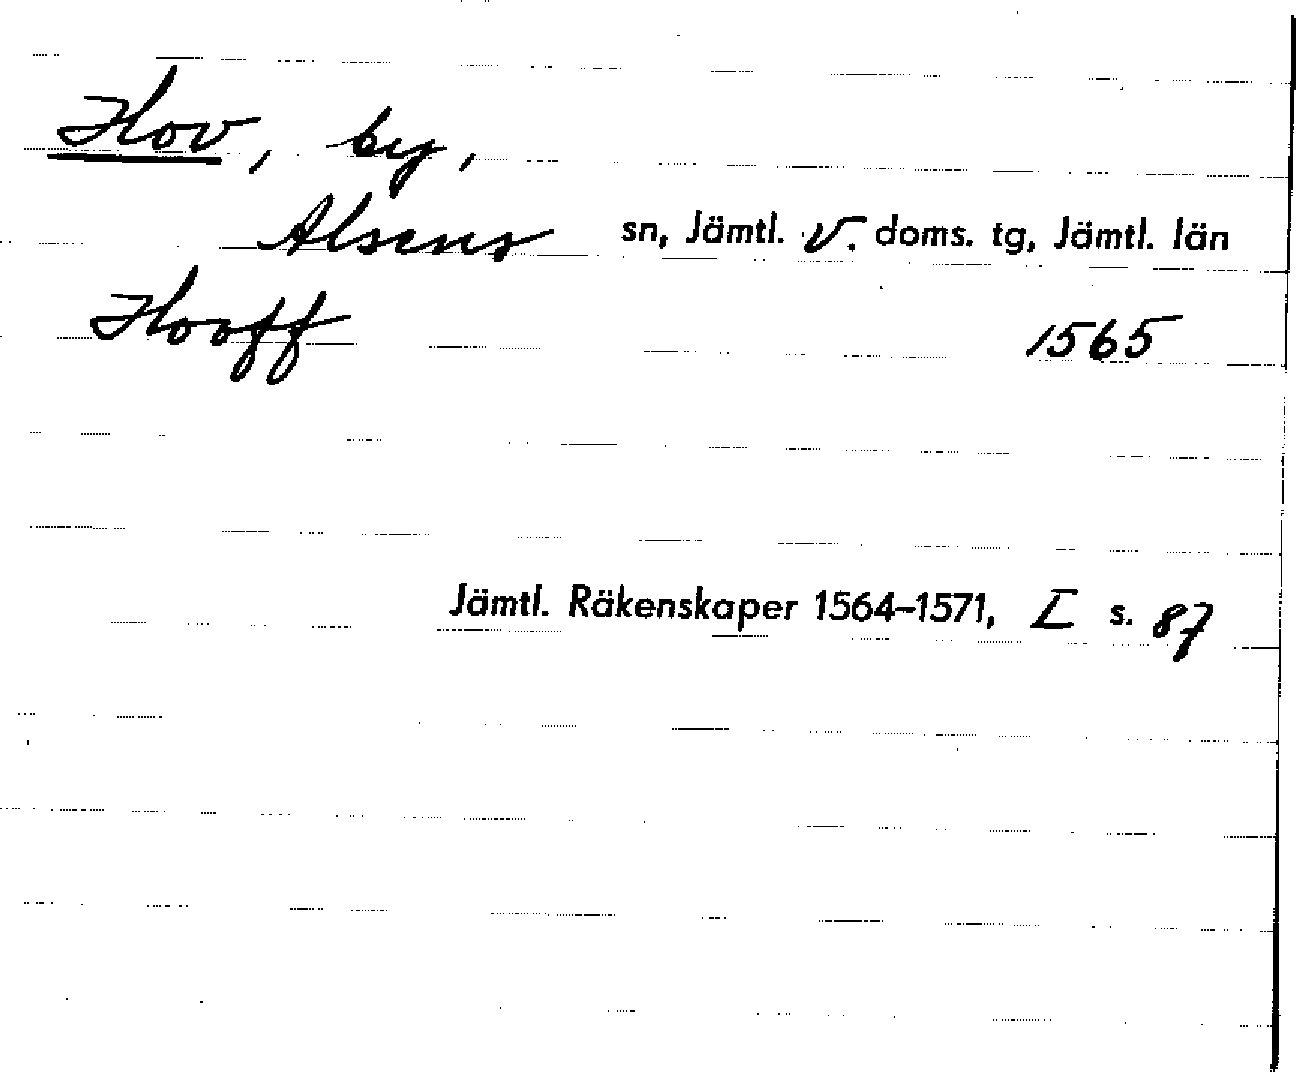 Hov, by,
Alsens sn, Jämtl. V. doms. tg, Jämtl. län
Hooff 1565
Jämtl. Räkenskaper 1564–1571, I s. 87